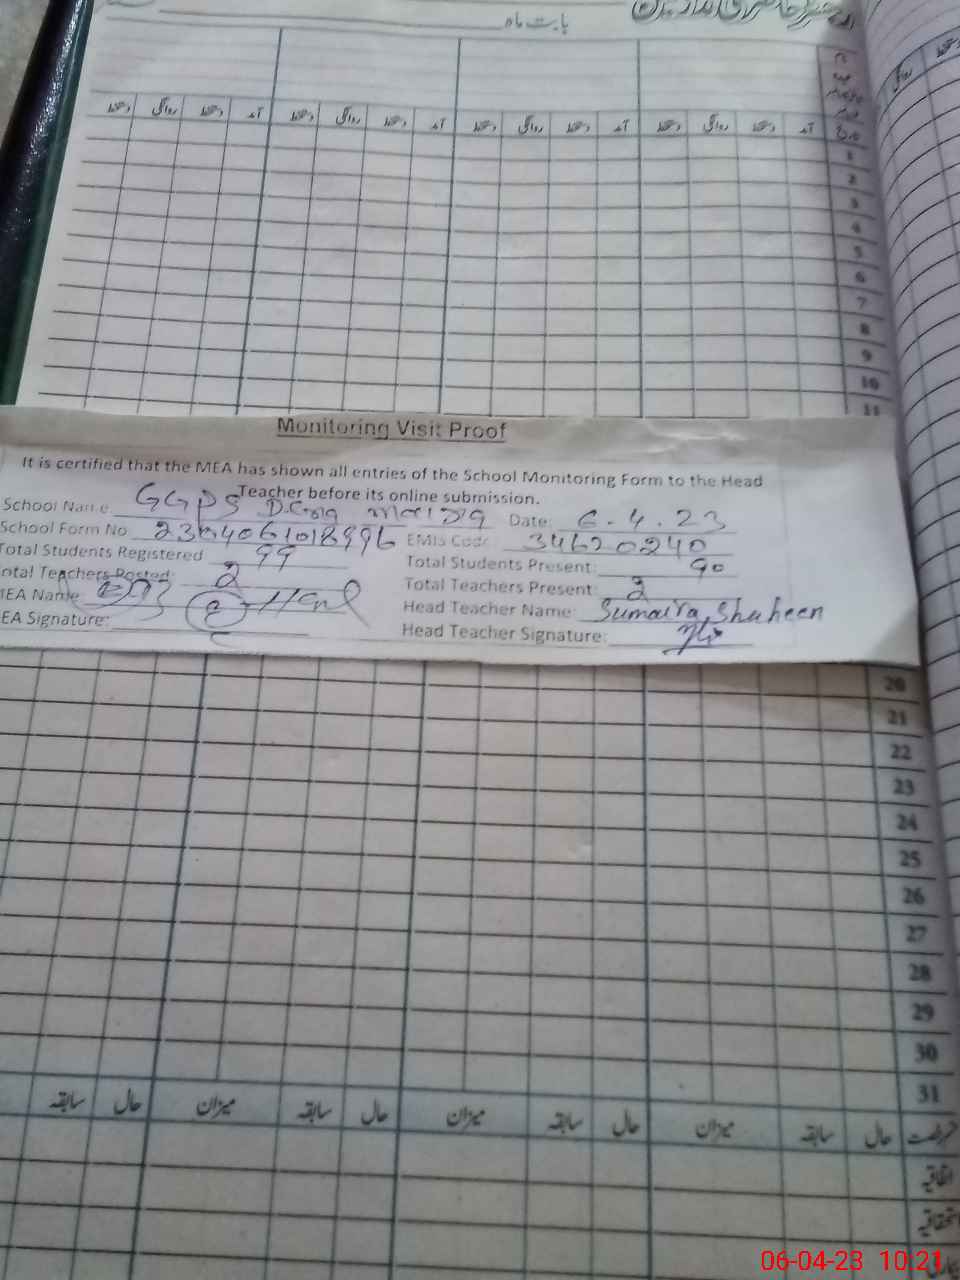 بابت ماہ
آمد دستخط روانگی دستخط آمد دستخط روانگی دستخط آمد دستخط روانگی دستخط آمد دستخط روانگی دستخط
1
2
3
4
5
6
7
8
9
10
11
Monitoring Visit Proof
It is certified that the MEA has shown all entries of the School Monitoring Form to the Head
Teacher before its online submission.
School Name GGPS Date: 6.4.23
School Form No EMIS Code: 34620240
Total Students Registered 99 Total Students Present: 90
Total Teachers Posted: 2 Total Teachers Present: 2
MEA Name Head Teacher Name: Sumaira Shaheen
EA Signature: Head Teacher Signature:
20
21
22
23
24
25
26
27
28
29
30
31
رخصت حال سابقہ میزان حال سابقہ میزان حال سابقہ میزان حال سابقہ
اتفاقیہ
استحقاقیہ
06-04-23 10:21